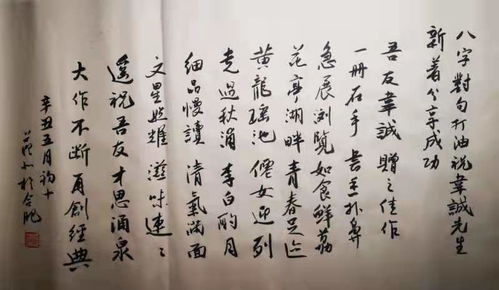 八字對句打油祝韋誠先生
新著分享成功
吾友韋誠 贈之佳作
一冊在手 書香扑鼻
急展浏覽 如食鮮荔
花亭湖畔 青春足迹
黄龍瑶池 僊女迎列
過秋浦 李白酌月
细品慢讀 清氣满面
文星 滋味連〻
遥祝吾友 才思涌泉
大作不断 再創經典
辛丑五月初十
於合肥